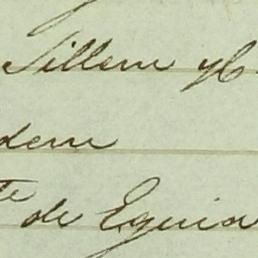 Sillem y C
dem
te de Eguia